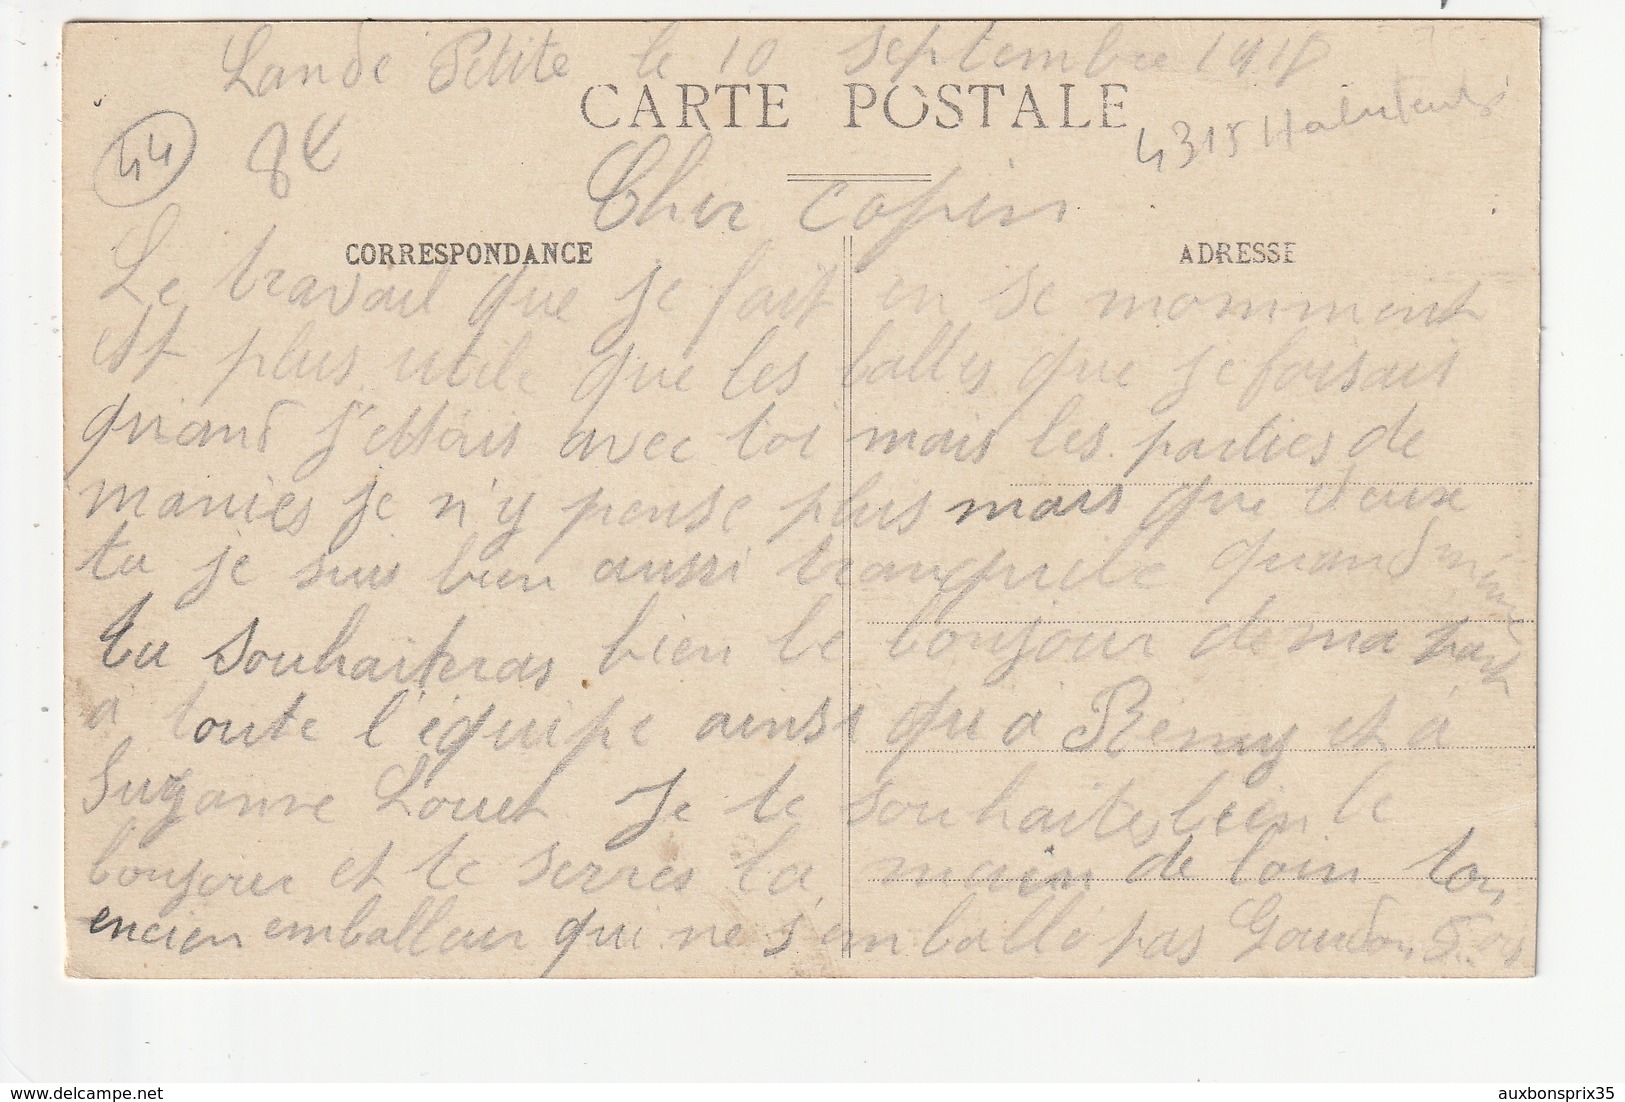 Lande Petite le 10 Septembre 1918
CARTE POSTALE
4315 Habitants
44
8€
Cher copin
CORRESPONDANCE
ADRESSE
Le travail que je fait en se momment
est plus utile que les balles que je faisais
quand j'ettais avec toi mais les parties de
manies je n'y pense plus mais que veux
tu je suis bien aussi tranquile quand même
tu souhaiteras bien le bonjour de ma part
a toute l'équipe ainsi qu'a Rémy et à
Suzanne Louet Je te souhaites bien le
bonjour et te serres la main de loin ton
encien emballeur qui ne s'emballe pas
www.delcampe.net
auxbonsprix35